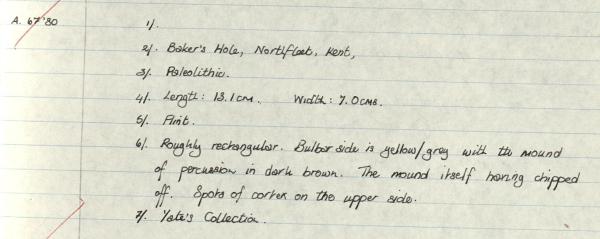 A. 67'80 1/.
2/. Baker's Hole, Northfleet, Kent,
3/. Paleolithic.
4/. Length: 13.1cm. Width: 7.0cms.
5/. Flint.
6/. Roughly rectangular. Bulbar side is yellow/grey with the mound
of percussion in dark brown. The mound itself having chipped
off. Spots of cortex on the upper side.
7/. Yate's Collection.